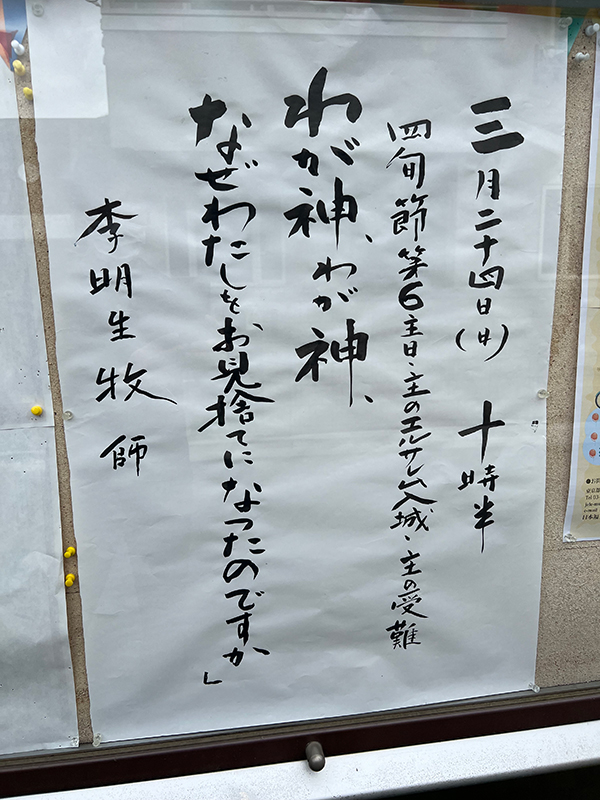 三月二十四日(日) 十時半
四旬節第6主日・主のエルサレム入城・主の受難
わが神、わが神、
なぜわたしをお見捨てになったのですか」
李明生牧師